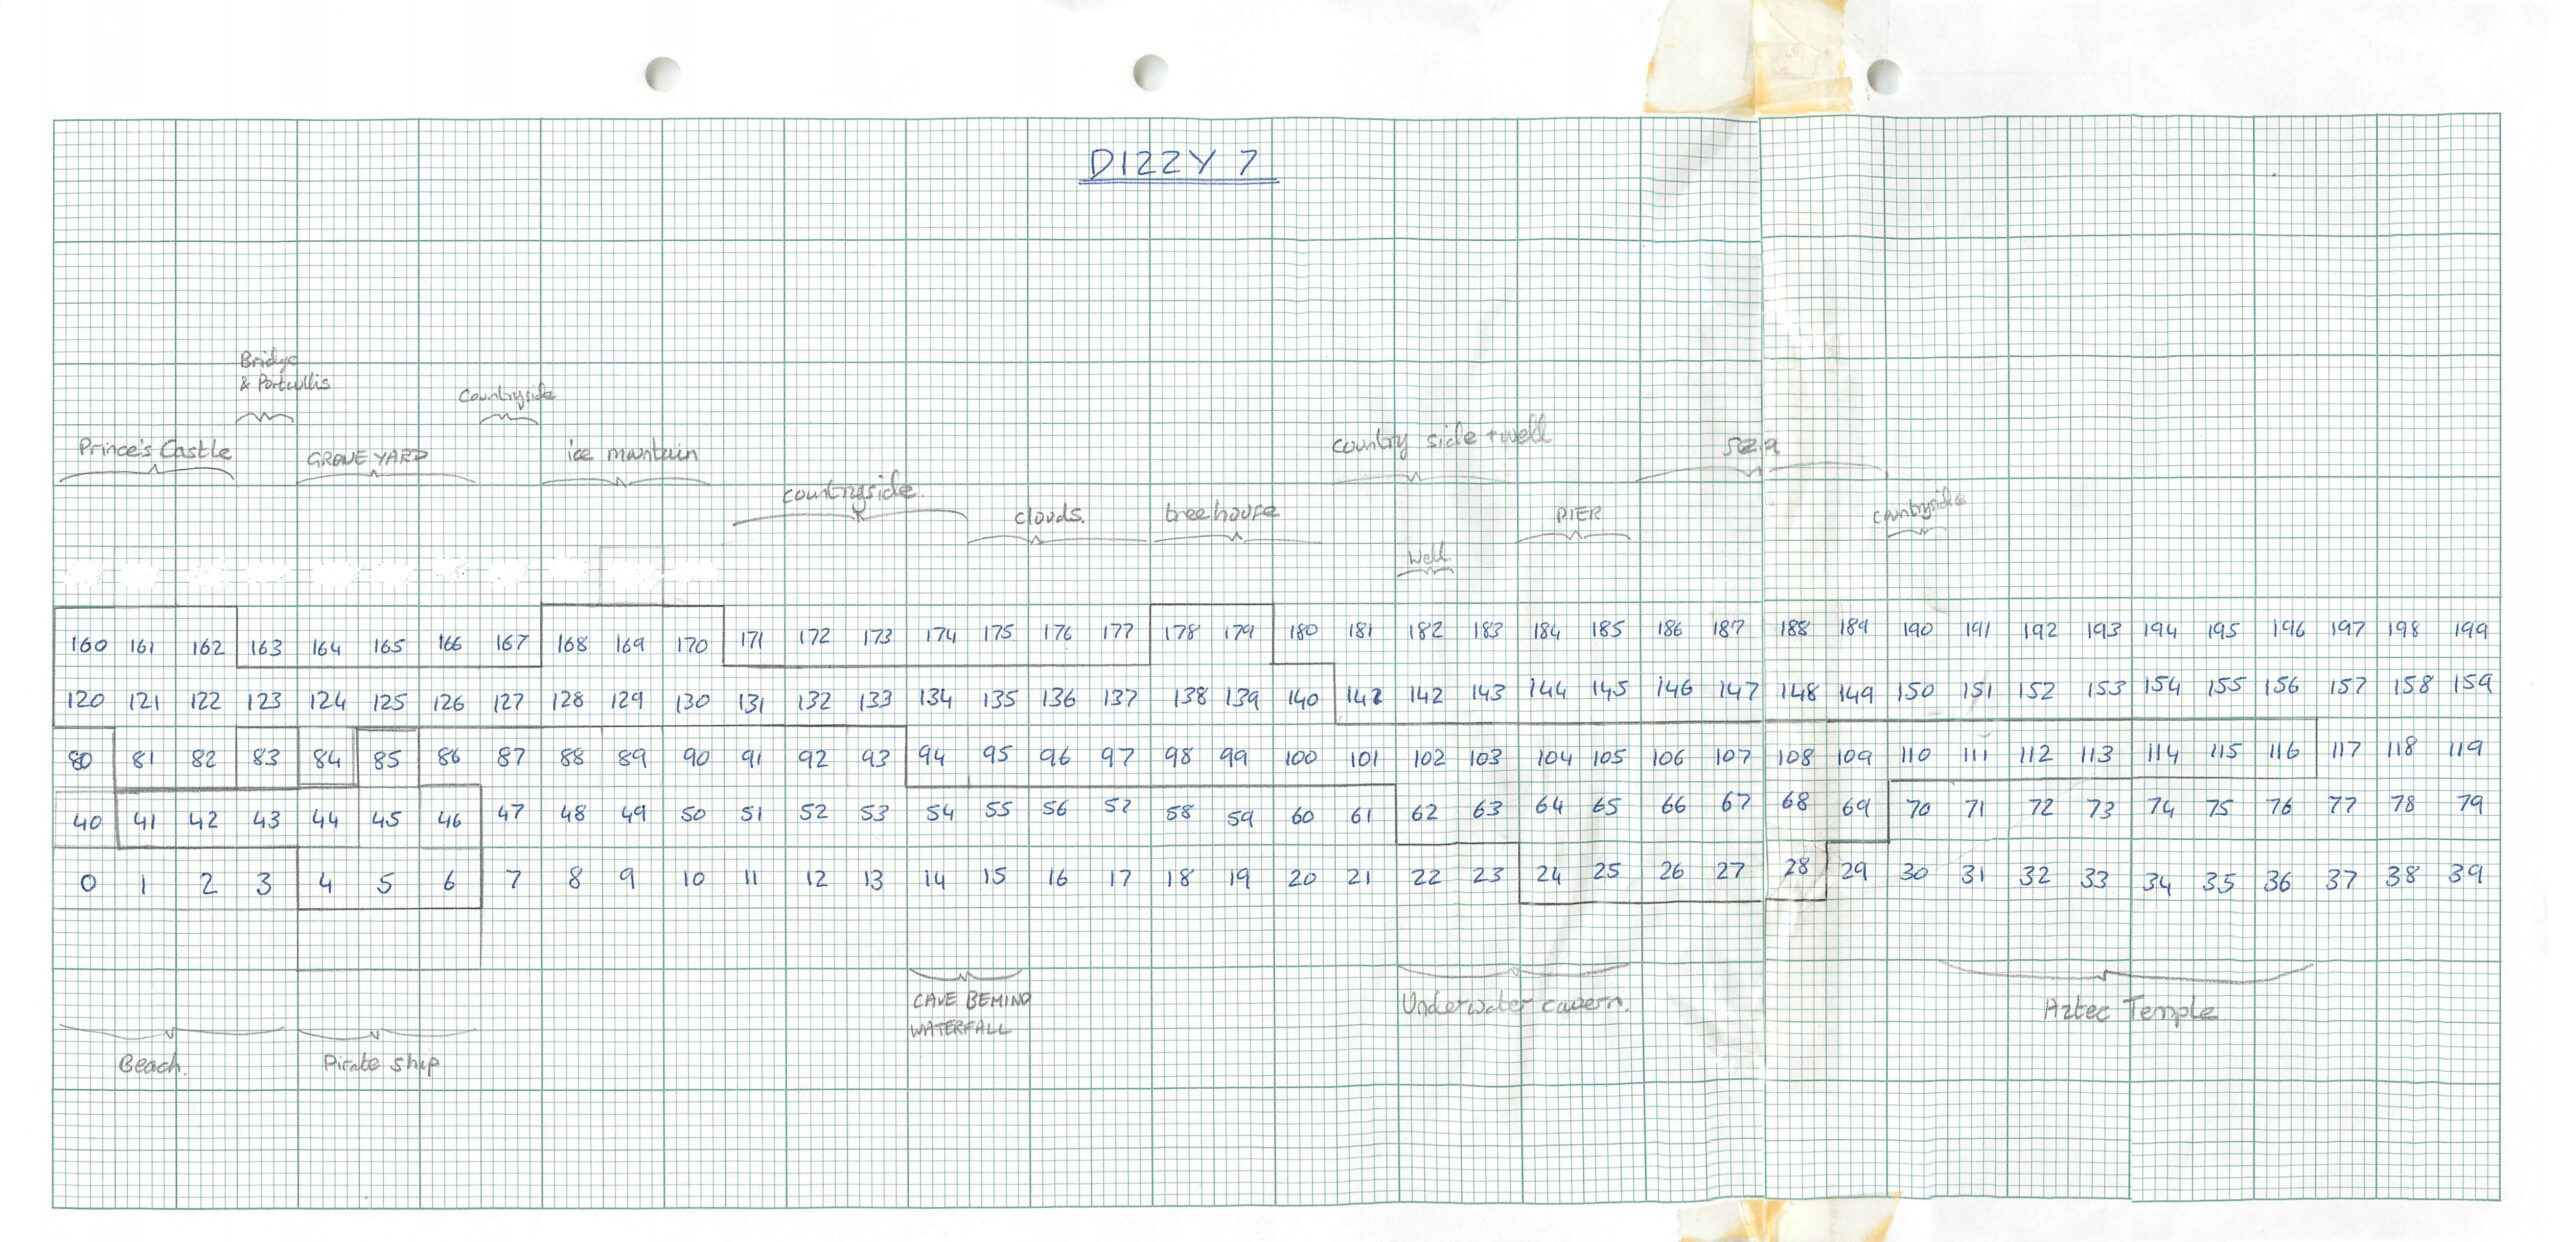 DIZZY 7
Bridge
& Portcullis
Countryside
Prince's Castle
GRAVEYARD
ice mantain
country side + well
Sea
countryside
clouds.
treehouse
PIER
countryside
Well
160 161 162 163 164 165 166 167 168 169 170 171 172 173 174 175 176 177 178 179 180 181 182 183 184 185 186 187 188 189 190 191 192 193 194 195 196 197 198 199
120 121 122 123 124 125 126 127 128 129 130 131 132 133 134 135 136 137 138 139 140 141 142 143 144 145 146 147 148 149 150 151 152 153 154 155 156 157 158 159
80 81 82 83 84 85 86 87 88 89 90 91 92 93 94 95 96 97 98 99 100 101 102 103 104 105 106 107 108 109 110 111 112 113 114 115 116 117 118 119
40 41 42 43 44 45 46 47 48 49 50 51 52 53 54 55 56 57 58 59 60 61 62 63 64 65 66 67 68 69 70 71 72 73 74 75 76 77 78 79
0 1 2 3 4 5 6 7 8 9 10 11 12 13 14 15 16 17 18 19 20 21 22 23 24 25 26 27 28 29 30 31 32 33 34 35 36 37 38 39
CAVE BEHIND
WATERFALL
Underwater cavern.
Aztec Temple
Beach.
Pirate ship